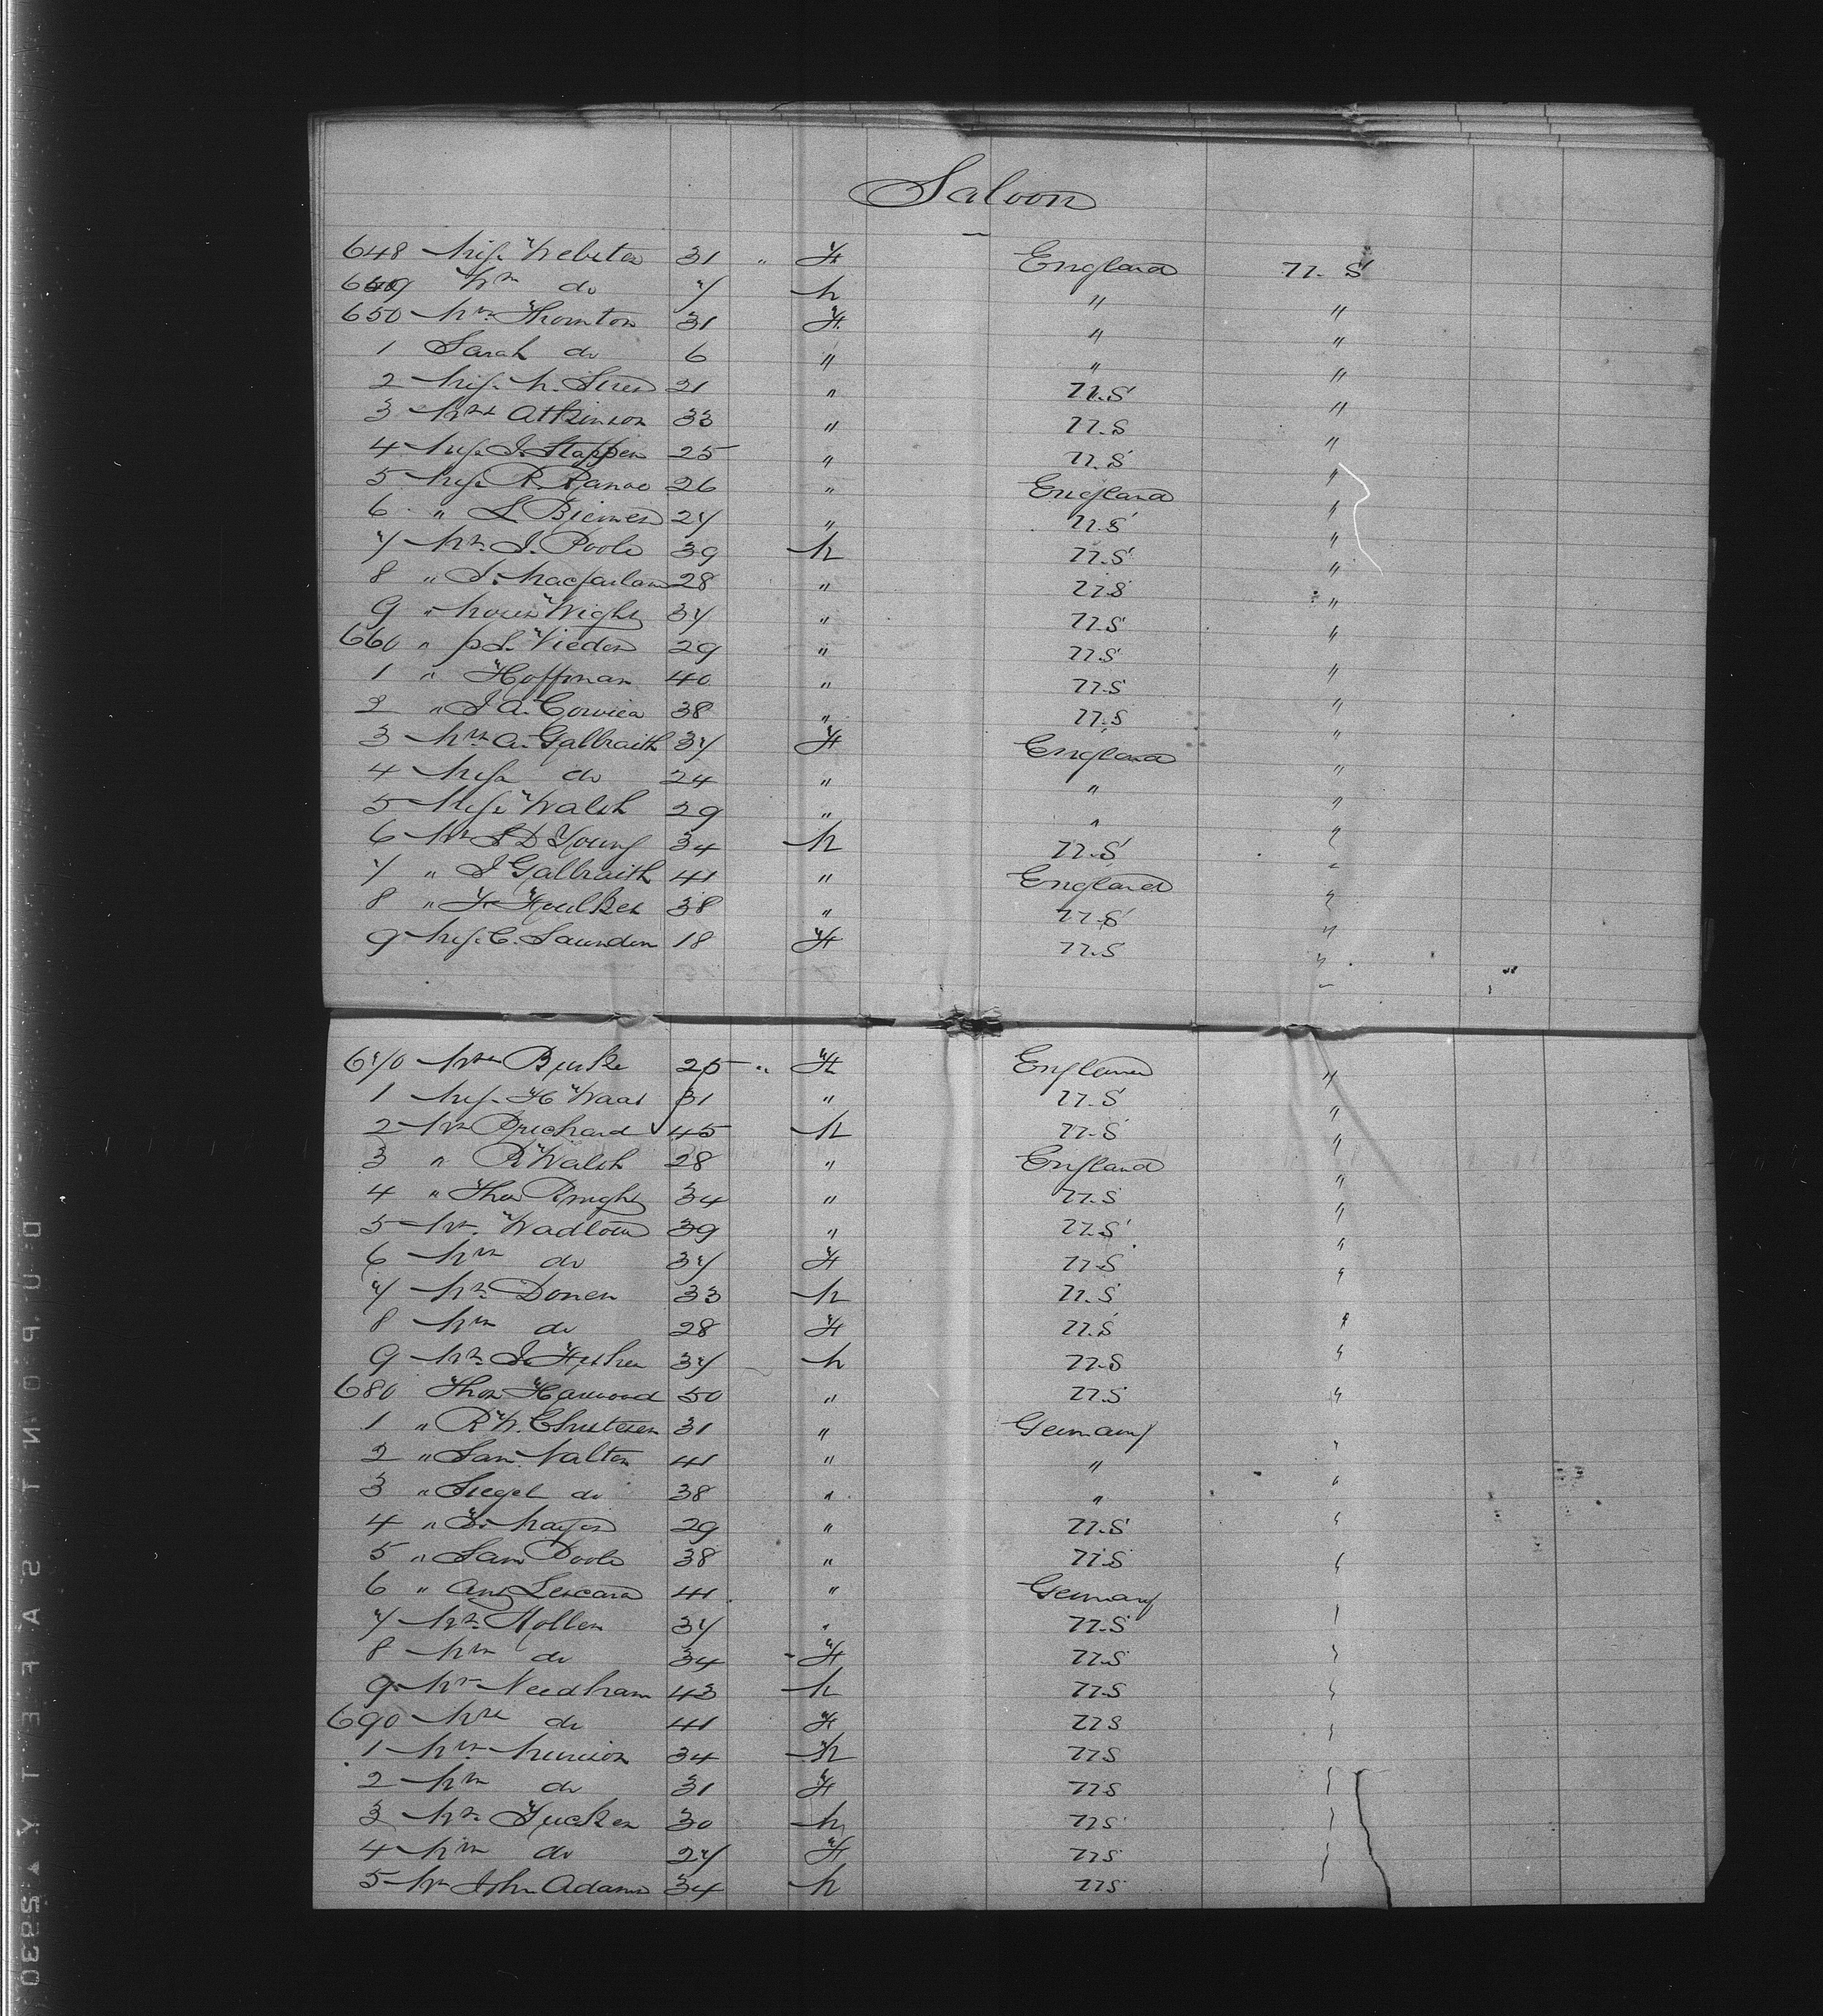 Saloon
648 Miss Webster 31 " F England U.S
649 Wm do 7 M " "
650 Mrs Thornton 31 F " "
1 Sarah do 6 " " "
2 Miss M. 21 " U.S "
3 Mrs Atkinson 33 " U.S "
4 Miss J. 25 " U.S "
5 Miss R. 26 " England "
6 " L 27 " U.S "
7 Mr. J. Poole 39 M U.S "
8 " J. Macfarlane 28 " U.S "
9 " Moses Wright 37 " U.S "
660 " 29 " U.S "
1 " Hoffman 40 " U.S "
2 " J A. 38 " U.S "
3 Mrs A. Galbraith 37 F England "
4 Miss do 24 " " "
5 Miss Walsh 29 " " "
6 Mr S D Young 34 M U.S "
7 " J Galbraith 41 " England "
8 " F 38 " U.S "
9 Miss C. Saunders 18 F U.S "
670 Mrs Burke 25 " F England "
1 Miss H 31 " U.S "
2 Mr Prichard 45 M U.S "
3 " R Walsh 28 " England "
4 " Thos 34 " U.S "
5 Mr. Wadlow 39 " U.S "
6 Mrs do 37 F U.S "
7 Mr. 33 M U.S "
8 Mrs do 28 F U.S "
9 Mr. J. Fisher 37 M U.S "
680 Thos Harwood 50 " U.S "
1 " R W. 31 " Germany "
2 " Sam. Walton 41 " " "
3 " Siegel do 38 " " "
4 " 29 " U.S "
5 " Sam Poole 38 " U.S "
6 " 41 " Germany
7 Mr. 37 " U.S
8 Mrs do 34 " F U.S
9 Mr Needham 43 M U.S
690 Mrs do 41 F U.S
1 Mr. 34 M U.S
2 Mrs do 31 F U.S
3 Mr. Tucker 30 M U.S
4 Mrs do 27 F U.S
5 Mr John Adams 34 M U.S
DUPONT SAFETY 2930